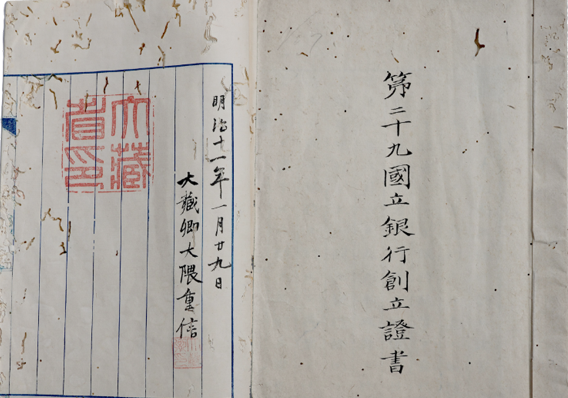 第二十九國立銀行創立證書
明治十一年一月廿九日
大藏卿大隈重信
大藏省印